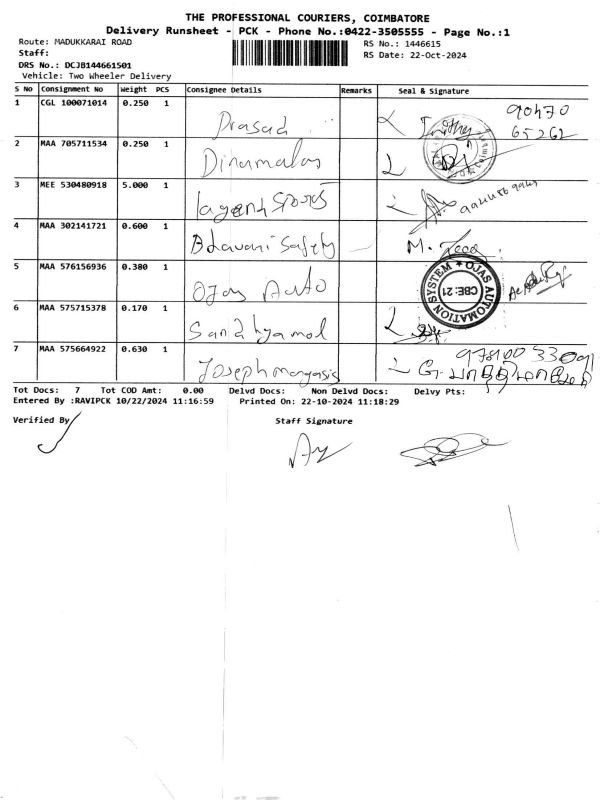 THE PROFESSIONAL COURIERS, COIMBATORE
Delivery Runsheet - PCK - Phone No.:0422-3505555 - Page No.:1
Route: MADUKKARAI ROAD
RS No.: 1446615
Staff:
RS Date: 22-Oct-2024
DRS No.: DCJB144661501
Vehicle: Two Wheeler Delivery
S No Consignment No Weight PCS Consignee Details Remarks Seal & Signature
1 CGL 100071014 0.250 1 Prasad 90470
65262
2 MAA 705711534 0.250 1 Dinamalar
3 MEE 530480918 5.000 1 Sports
4 MAA 302141721 0.600 1 Bhavani Safety M.
5 MAA 576156936 0.380 1 Ojas Auto
OJAS AUTOMATION SYSTEM ★
CBE: 21
6 MAA 575715378 0.170 1 Sandhyamol
7 MAA 575664922 0.630 1 Joseph
Tot Docs: 7 Tot COD Amt: 0.00 Delvd Docs: Non Delvd Docs: Delvy Pts:
Entered By :RAVIPCK 10/22/2024 11:16:59 Printed On: 22-10-2024 11:18:29
Verified By Staff Signature